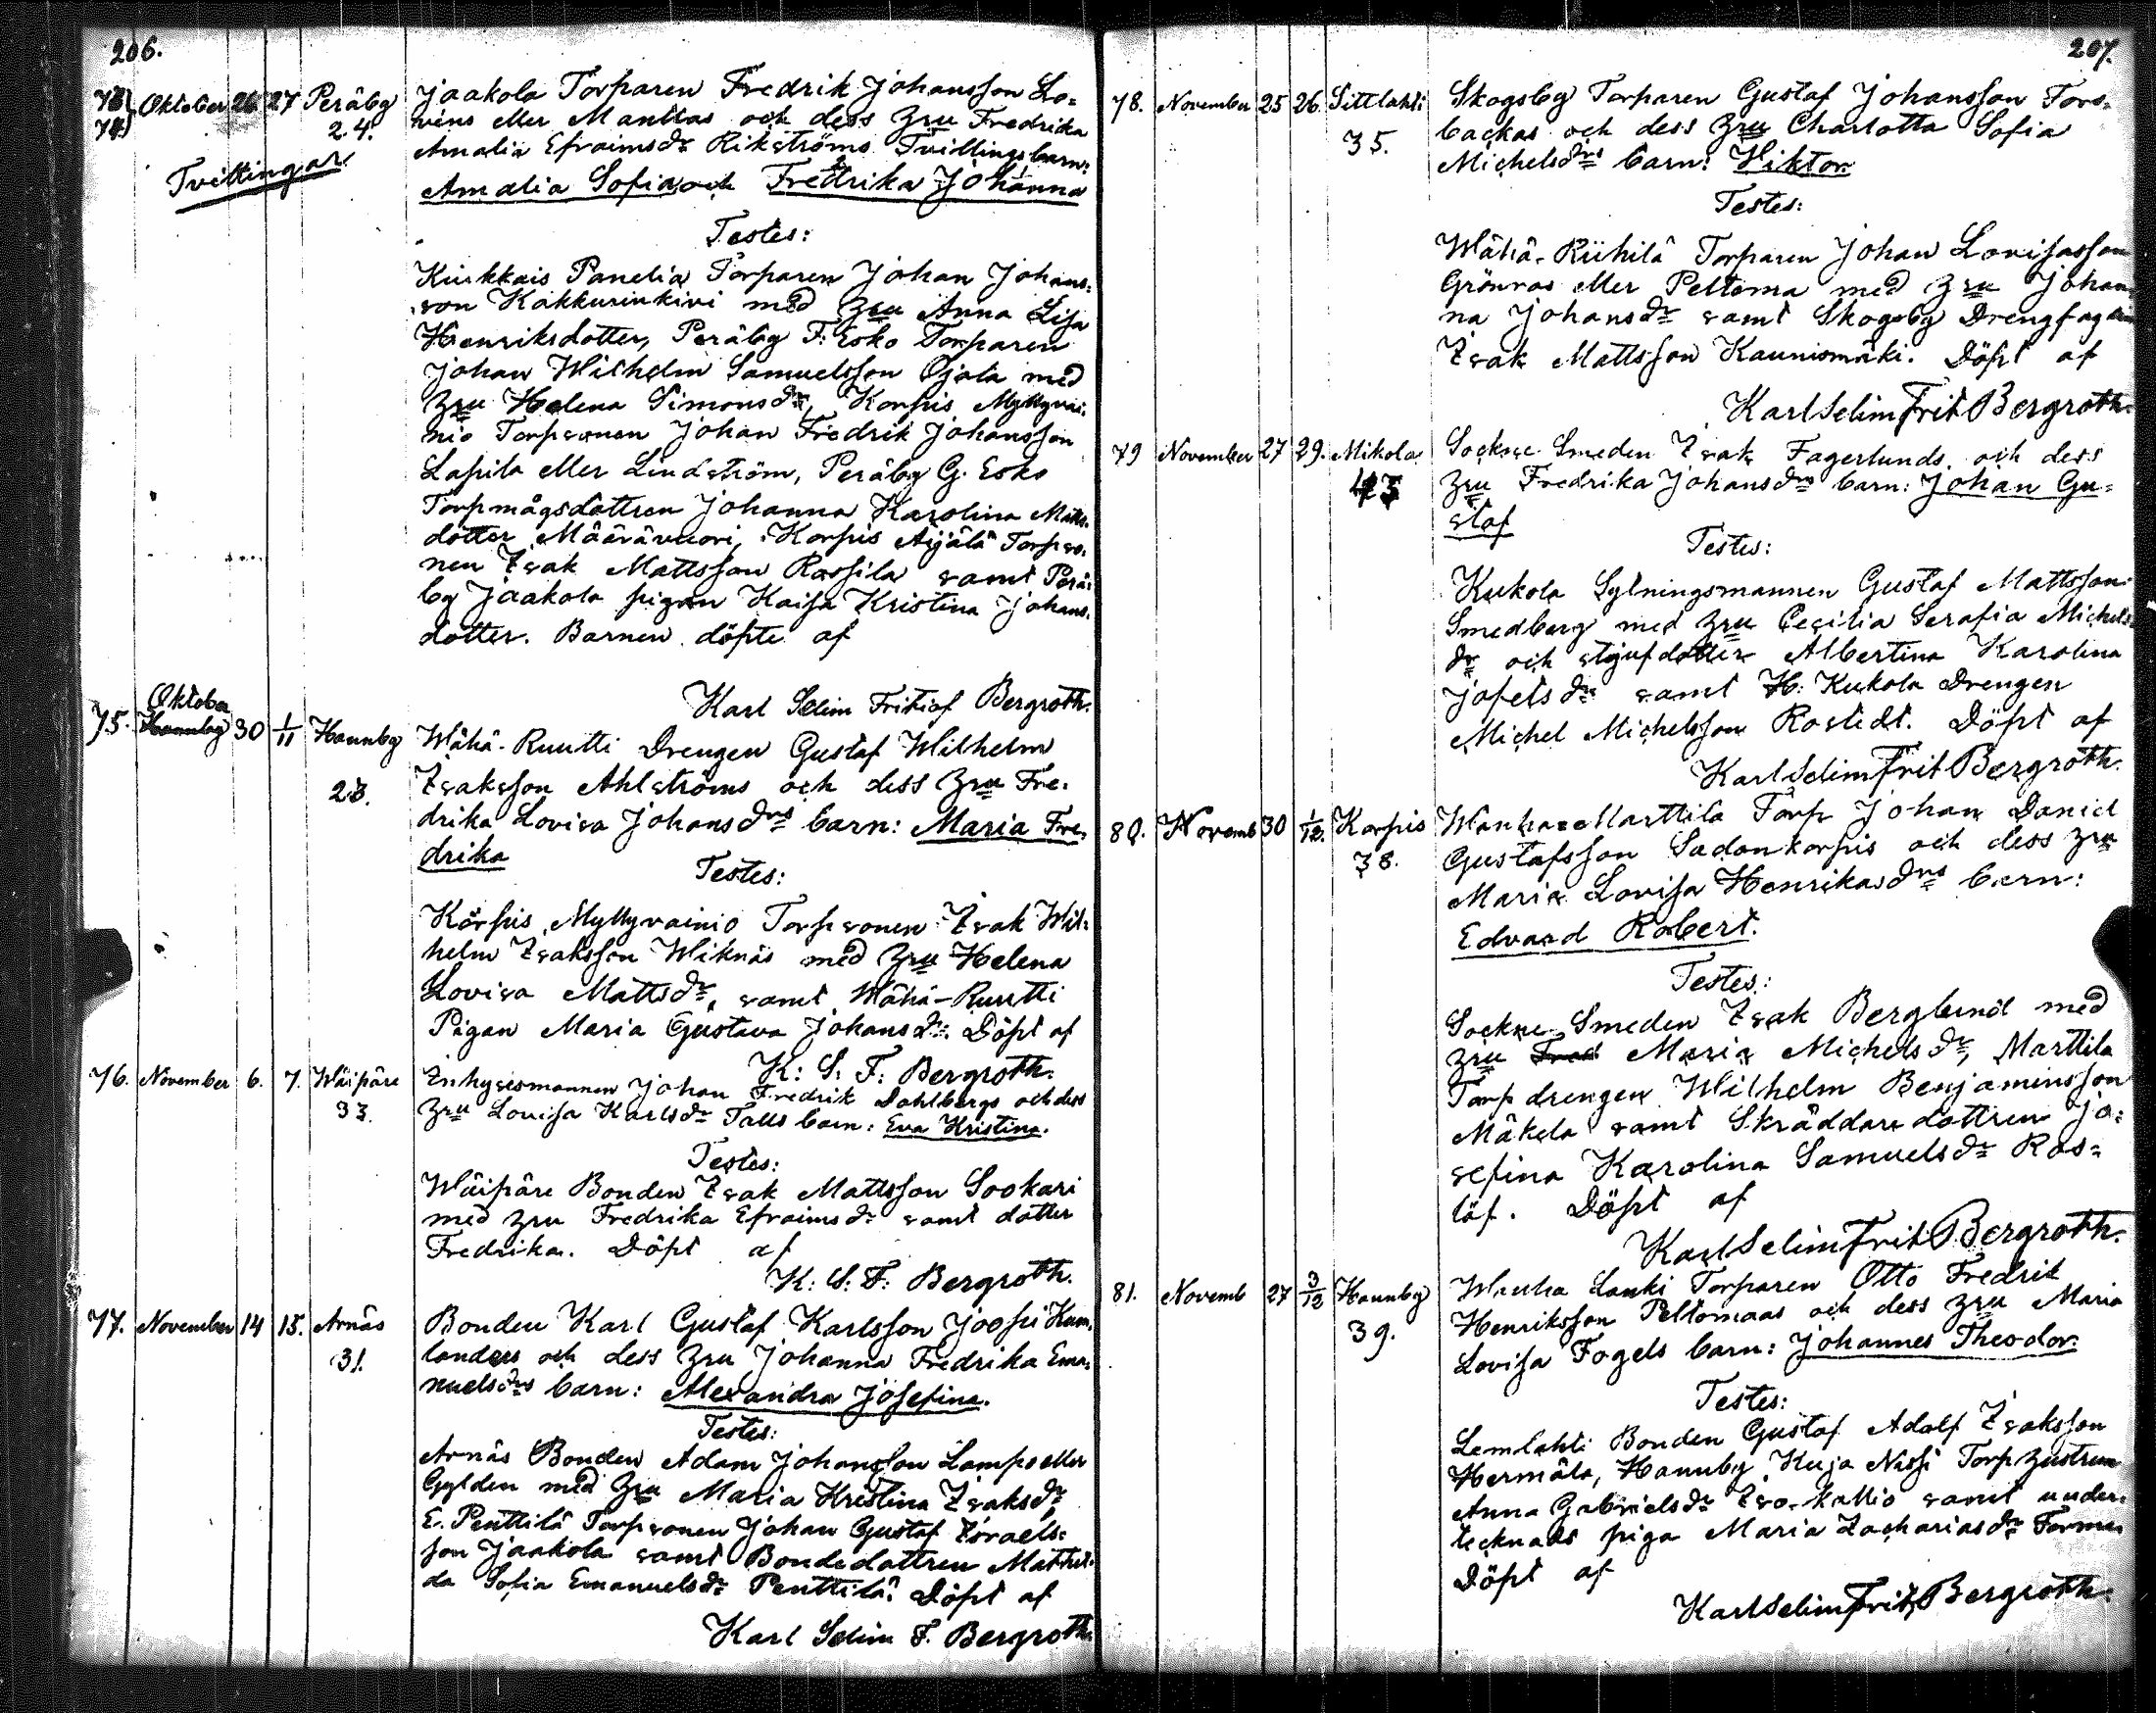 206.
73} Oktober 26 27 Peräby Jaakola Torparen Fredrik Johansson Lo=
74} 24. vens eller Manttas och dess Hru Fredrika
Amalia Efraimsdr Rikströms Tvillingsbarn:
Tvillingar. Amalia Sofia och Fredrika Johanna
Testes:
Kiukkais Panelia Torparen Johan Johans=
son Kakkurinkivi med Hru Anna Lisa
Henriksdotter, Peräby F: Esko Torparen
Johan Wilhelm Samuelsson Ojala med
Hru Helena Simonsdr, Korpis Myllyvai=
nio Torpsonen Johan Fredrik Johansson
Lapila eller Lindström, Peräby G. Esko
Torpmågsdottren Johanna Karolina Matts=
dotter Määrävuori, Korpis Äijälä Torpso=
nen Isak Mattsson Rossila samt Perä=
by Jaakola pigan Kaisa Kristina Johans=
dotter. Barnen döpte af
Karl Selim Fritiof Bergroth.
Oktober
75. Hannby 30 1/11 Hannby Wähä-Ruutti Drengen Gustaf Wilhelm
23. Isaksson Ahlströms och dess Hru Fre=
drika Lovisa Johansdrs barn: Maria Fre=
drika
Testes:
Korpis Myllyvainio Torpsonen Isak Wil=
helm Isaksson Wiknäs med Hru Helena
Lovisa Mattsdr, samt Wähä-Ruutti
Pigan Maria Gustava Johansdr. Döpt af
K: S: F: Bergroth.
76. November 6. 7. Wäipäre Inhysesmannen Johan Fredrik Dahlbergs och dess
33. Hru Lovisa Karlsdr Talls barn: Eva Kristina.
Testes:
Wäipäre Bonden Isak Mattsson Sookari
med Hru Fredrika Efraimsdr samt dotter
Fredrika. Döpt af
K: S: F: Bergroth.
77. November 14 15. Arnäs Bonden Karl Gustaf Karlsson Joosi Kum=
31. landers och dess Hru Johanna Fredrika Ema=
nuelsdrs barn: Alexandra Josefina.
Testes:
Arnäs Bonden Adam Johansson Lampo eller
Gylden med Hru Maria Kristina Isaksdr
E. Penttilä Torpsonen Johan Gustaf Israels=
son Jaakola samt Bondedottren Mathil=
da Sofia Emanuelsdr Penttilä. Döpt af
Karl Selim F. Bergroth.
207.
78. November 25 26. Sittlahti Skogsby Torparen Gustaf Johansson Fors=
35. backas och dess Hru Charlotta Sofia
Michelsdrs barn: Viktor.
Testes:
Wähä-Riihilä Torparen Johan Lovisasson
Grönroos eller Peltoma med Hru Johan=
na Johansdr samt Skogsby Dreng
Isak Mattsson Kaunismäki. Döpt af
Karl Selim Frit Bergroth.
79 November 27 29. Mikola Sockne Smeden Isak Fagerlunds och dess
43 Hru Fredrika Johansdrs barn: Johan Gu=
staf
Testes:
Kukola Sytningsmannen Gustaf Mattsson
Smedberg med Hru Cecilia Serafia Michels=
dr och styufdotter Albertina Karolina
Josefsdr samt H: Kukola Drengen
Michel Michelsson Rostedt. Döpt af
Karl Selim Frit Bergroth.
80. Novemb 30 1/12. Korpis Wanha=Marttila Torp Johan Daniel
38. Gustafsson Sadonkorpis och dess Hru
Maria Lovisa Henriksdrs barn:
Edvard Robert.
Testes:
Sockne Smeden Isak Berglund med
Hru Fred Maria Michelsdr, Marttila
Torpdrengen Wilhelm Benjaminsson
Mäkela samt Skräddaredottren Jo=
sefina Karolina Samuelsdr Ros=
löf. Döpt af
Karl Selim Frit Bergroth.
81. Novemb 27 3/12 Hannby Wanha Lauki Torparen Otto Fredrik
39. Henriksson Peltomaas och dess Hru Maria
Lovisa Fogels barn: Johannes Theodor.
Testes:
Lemlahti Bonden Gustaf Adolf Isaksson
Hermäla, Hannby Kuja Nissi Torphustrun
Anna Gabrielsdr Isokallio samt under=
tecknads piga Maria Zachariasdr
Döpt af
Karl Selim Frit Bergroth.